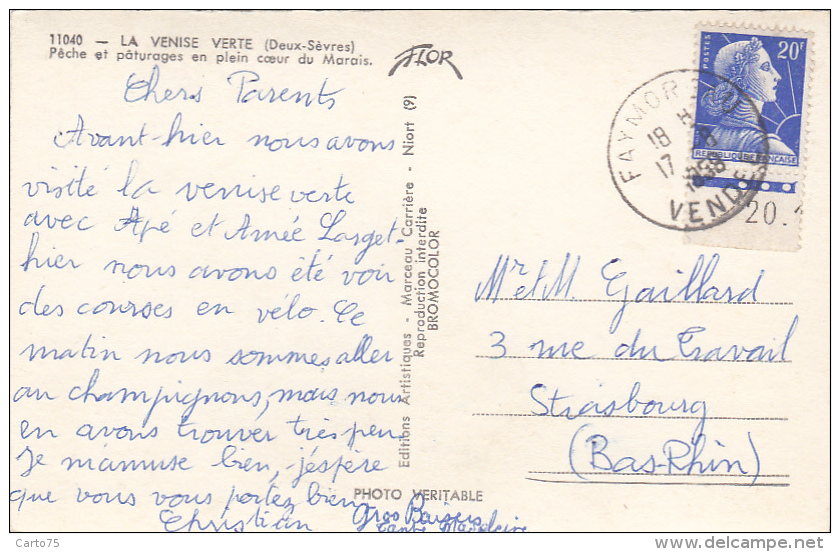 11040 — LA VENISE VERTE (Deux-Sèvres)
Pêche et pâturages en plein cœur du Marais.
FLOR
Chers Parents
Avant-hier nous avons
visité la venise verte
avec et Aimée
hier nous avons été voir
des courses en vélo. Ce
matin nous sommes aller
au champignons, mais nous
en avons trouver très peu
Je m'amuse bien, j'éspère
que vous vous portez bien
Christian
Gros Baisers
Editions Artistiques - Marceau Carrière - Niort (9)
Reproduction interdite
BROMOCOLOR
PHOTO VERITABLE
POSTES
20F
REPUBLIQUE FRANÇAISE
FAYMOR
18 H
17
VENDEE
20.
Mr et M. Gaillard
3 rue du Travail
Strasbourg
(Bas-Rhin)
Carto75
www.delcampe.net